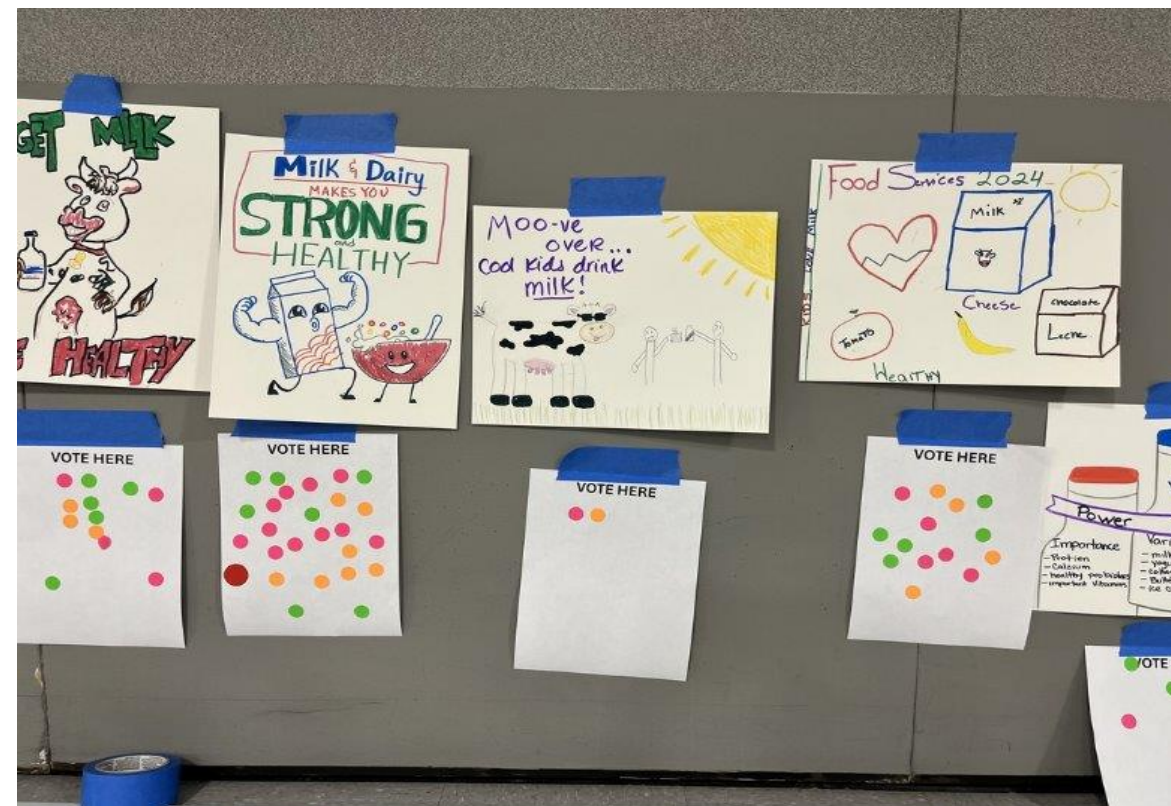 GET MILK
HEALTHY
Milk & Dairy
MAKES YOU
STRONG
and
HEALTHY
MOO-ve
over...
Cool kids drink
milk!
Food Services 2024
Milk
Cheese
chocolate
Lecne
Tomato
Healthy
KIDS Milk
VOTE HERE
VOTE HERE
VOTE HERE
VOTE HERE
Power
Importance
- Protien
- Calcium
- healthy probiotics
- important vitamins
VOTE